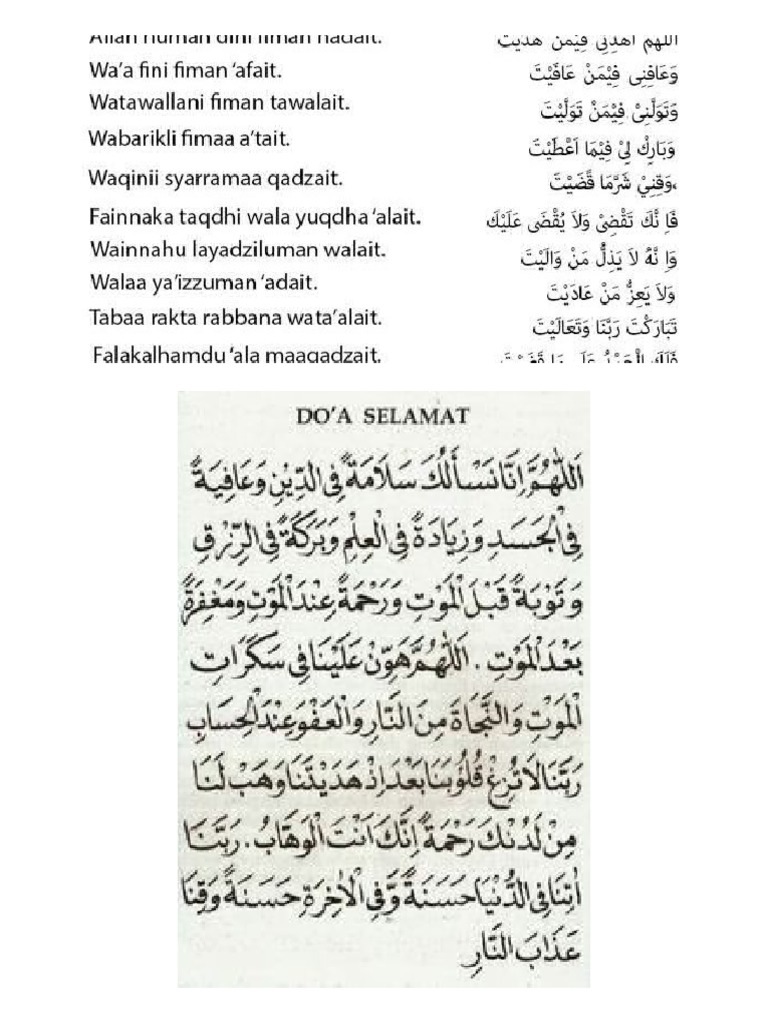 Allah dini fiman hadait.
اَللّهُمَّ اهْدِنِى فِيْمَنْ هَدَيْتَ
Wa'a fini fiman ‘afait.
وَعَافِنِى فِيْمَنْ عَافَيْتَ
Watawallani fiman tawalait.
وَتَوَلَّنِىْ فِيْمَنْ تَوَلَّيْتَ
Wabarikli fimaa a'tait.
وَبَارِكْ لِىْ فِيْمَا اَعْطَيْتَ
Waqinii syarramaa qadzait.
وَقِنِيْ شَرَّمَا قَضَيْتَ،
Fainnaka taqdhi wala yuqdha ‘alait.
فَاِ نَّكَ تَقْضِىْ وَلاَ يُقْضَى عَلَيْكَ
Wainnahu layadziluman walait.
وَاِ نَّهُ لاَ يَذِلُّ مَنْ وَالَيْتَ
Walaa ya'izzuman ‘adait.
وَلاَ يَعِزُّ مَنْ عَادَيْتَ
Tabaa rakta rabbana wata'alait.
تَبَارَكْتَ رَبَّنَا وَتَعَالَيْتَ
Falakalhamdu ‘ala maaqadzait.
فَلَكَ الْحَمْدُ عَلَى مَا قَضَيْتَ
DO'A SELAMAT
اَللّٰهُمَّ اِنَّا نَسْأَلُكَ سَلَامَةً فِى الدِّيْنِ وَعَافِيَةً
فِى الْجَسَدِ وَزِيَادَةً فِى الْعِلْمِ وَبَرَكَةً فِى الرِّزْقِ
وَتَوْبَةً قَبْلَ الْمَوْتِ وَرَحْمَةً عِنْدَ الْمَوْتِ وَمَغْفِرَةً
بَعْدَ الْمَوْتِ . اَللّٰهُمَّ هَوِّنْ عَلَيْنَا فِى سَكَرَاتِ
الْمَوْتِ وَالنَّجَاةَ مِنَ النَّارِ وَالْعَفْوَ عِنْدَ الْحِسَابِ
رَبَّنَا لَا تُزِغْ قُلُوْبَنَا بَعْدَ اِذْ هَدَيْتَنَا وَهَبْ لَنَا
مِنْ لَدُنْكَ رَحْمَةً اِنَّكَ اَنْتَ الْوَهَّابُ . رَبَّنَا
اٰتِنَا فِى الدُّنْيَا حَسَنَةً وَّفِى الْاٰخِرَةِ حَسَنَةً وَّقِنَا
عَذَابَ النَّارِ